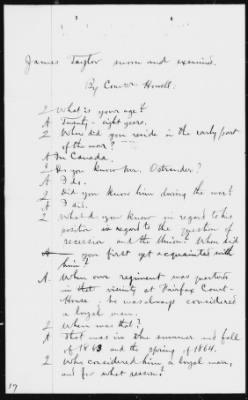 James Taylor sworn and examined.
By Com'er Howell.
Q What is your age?
A Twenty-eight years.
Q Where did you reside in the early part
of the war?
A In Canada.
Q Do you know Mr. Ostrander?
A I do.
Q Did you know him during the war?
A I did.
Q What do you know in regard to his
position in regard to the question of
secession and the Union? When did
you first get acquainted with
him?
A When our regiment was quartered
in that vicinity at Fairfax Court-
House; he was always considered
a loyal man.
Q When was that?
A That was in the summer and fall
of 1863 and the spring of 1864.
Q Who considered him a loyal man,
and for what reason?
17